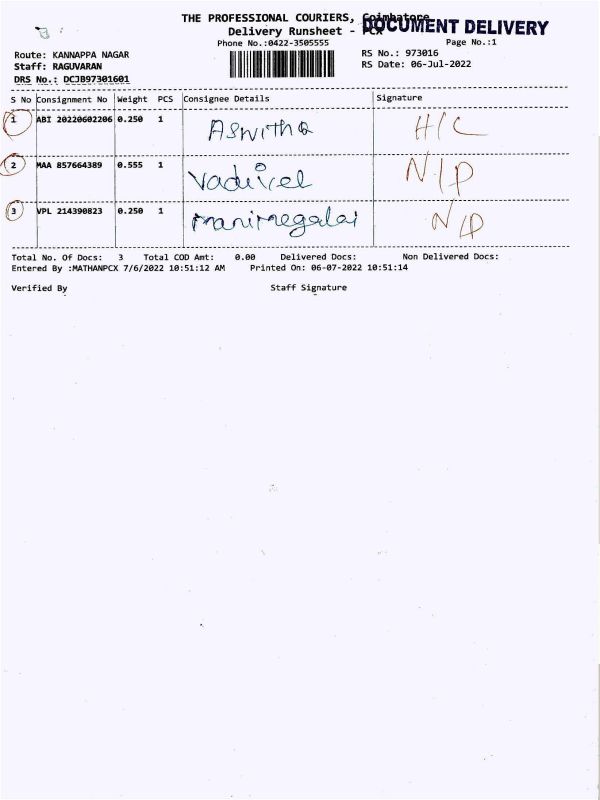 THE PROFESSIONAL COURIERS, Coimbatore
DOCUMENT DELIVERY
Delivery Runsheet - PCX
Phone No.:0422-3505555
Page No.:1
Route: KANNAPPA NAGAR
RS No.: 973016
Staff: RAGUVARAN
RS Date: 06-Jul-2022
DRS No.: DCJB97301601
S No Consignment No Weight PCS Consignee Details Signature
1 ABI 20220602206 0.250 1 Aswitha H/C
2 MAA 857664389 0.555 1 Vadivel N/P
3 VPL 214390823 0.250 1 manimegalai N/D
Total No. Of Docs: 3 Total COD Amt: 0.00 Delivered Docs: Non Delivered Docs:
Entered By :MATHANPCX 7/6/2022 10:51:12 AM Printed On: 06-07-2022 10:51:14
Verified By Staff Signature